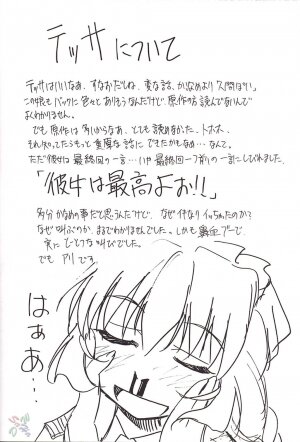 テッサについて
テッサはいいなあ。すなおだしね、変な話、かなめより人間ぽい。
この娘もバックに色々とありそうなんだけど、原作の方読んでないんで
よくわかりません。
でも原作は多いからなあ、とても読めなかった。トホホ。
それ知ってたらもっと重厚な話にできたかもなあ…なんて。
ただ彼女は最終回の一言…いや最終回一つ前の一言にしびれました。
「彼女は最高よお!!」
多分かなめの事だと思うんだけど、なぜ件なりイッちゃったのか?
なぜ叫ぶのか、までわかりませんでした。しかも鼻血ブーで
実にひとつな叫びでした。
でもアリです。
はぁあ…